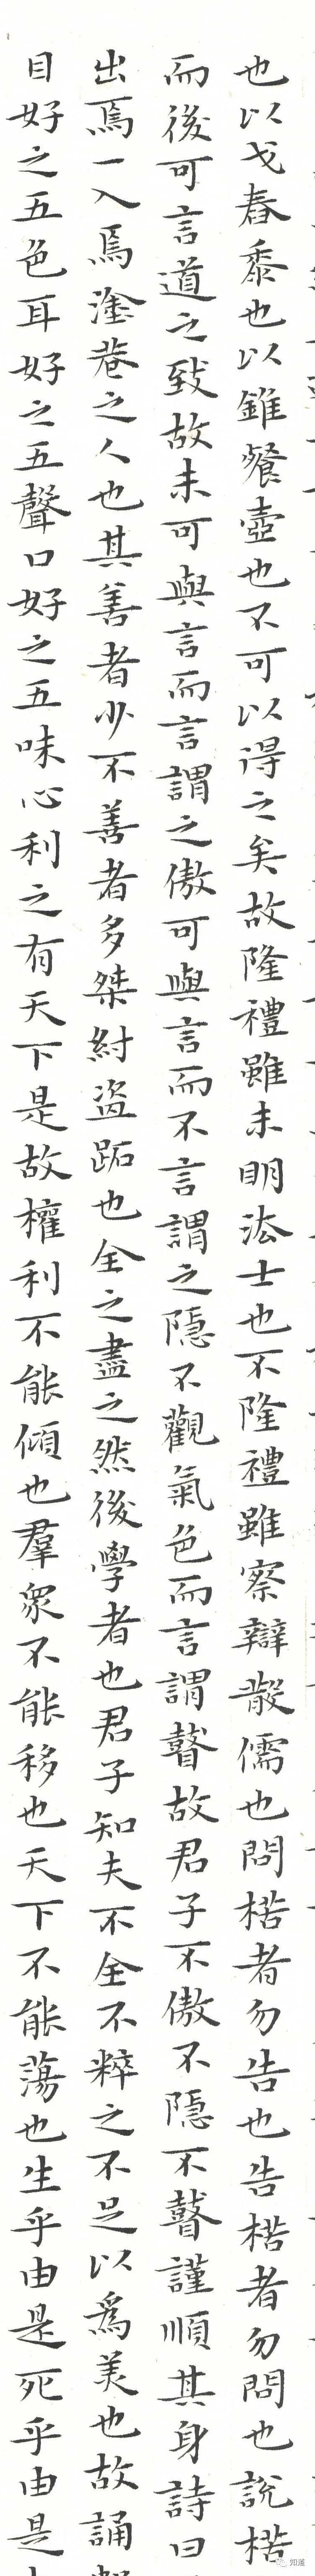 也以戈舂黍也以錐餐壺也不可以得之矣故隆禮雖未明法士也不隆禮雖察辯散儒也問楛者勿告也告楛者勿問也說楛
而後可言道之致故未可與言而言謂之傲可與言而不言謂之隱不觀氣色而言謂瞽故君子不傲不隱不瞽謹順其身詩曰
出焉一入焉塗巷之人也其善者少不善者多桀紂盜跖也全之盡之然後學者也君子知夫不全不粹之不足以為美也故誦
目好之五色耳好之五聲口好之五味心利之有天下是故權利不能傾也羣眾不能移也天下不能蕩也生乎由是死乎由是
知道